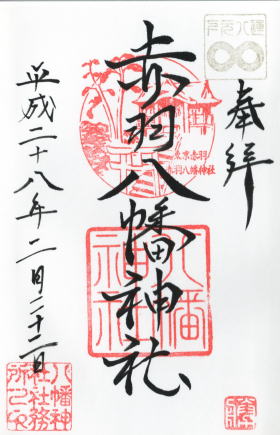 奉拝
赤羽八幡神社
東京赤羽
赤羽八幡神社
八幡
神社
平成二十八年二月二十二日
八幡神
社社務
所之印